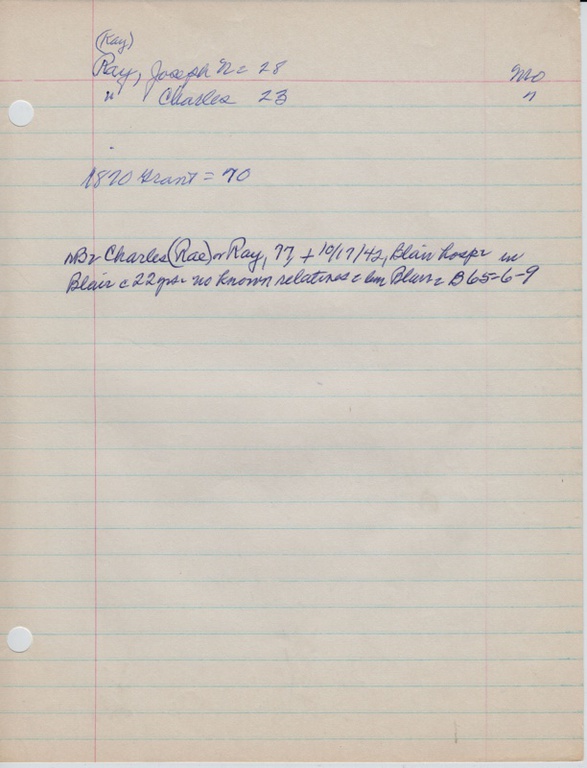 (Kay)
Ray, Joseph N = 28 Mo
" Charles 23 "
1870 Grant = 70
NB = Charles (Rae) or Ray, 77, + 10/17/42, Blair hosp = in
Blair c 22 yrs = no known relatives = bm Blair = B65-6-9